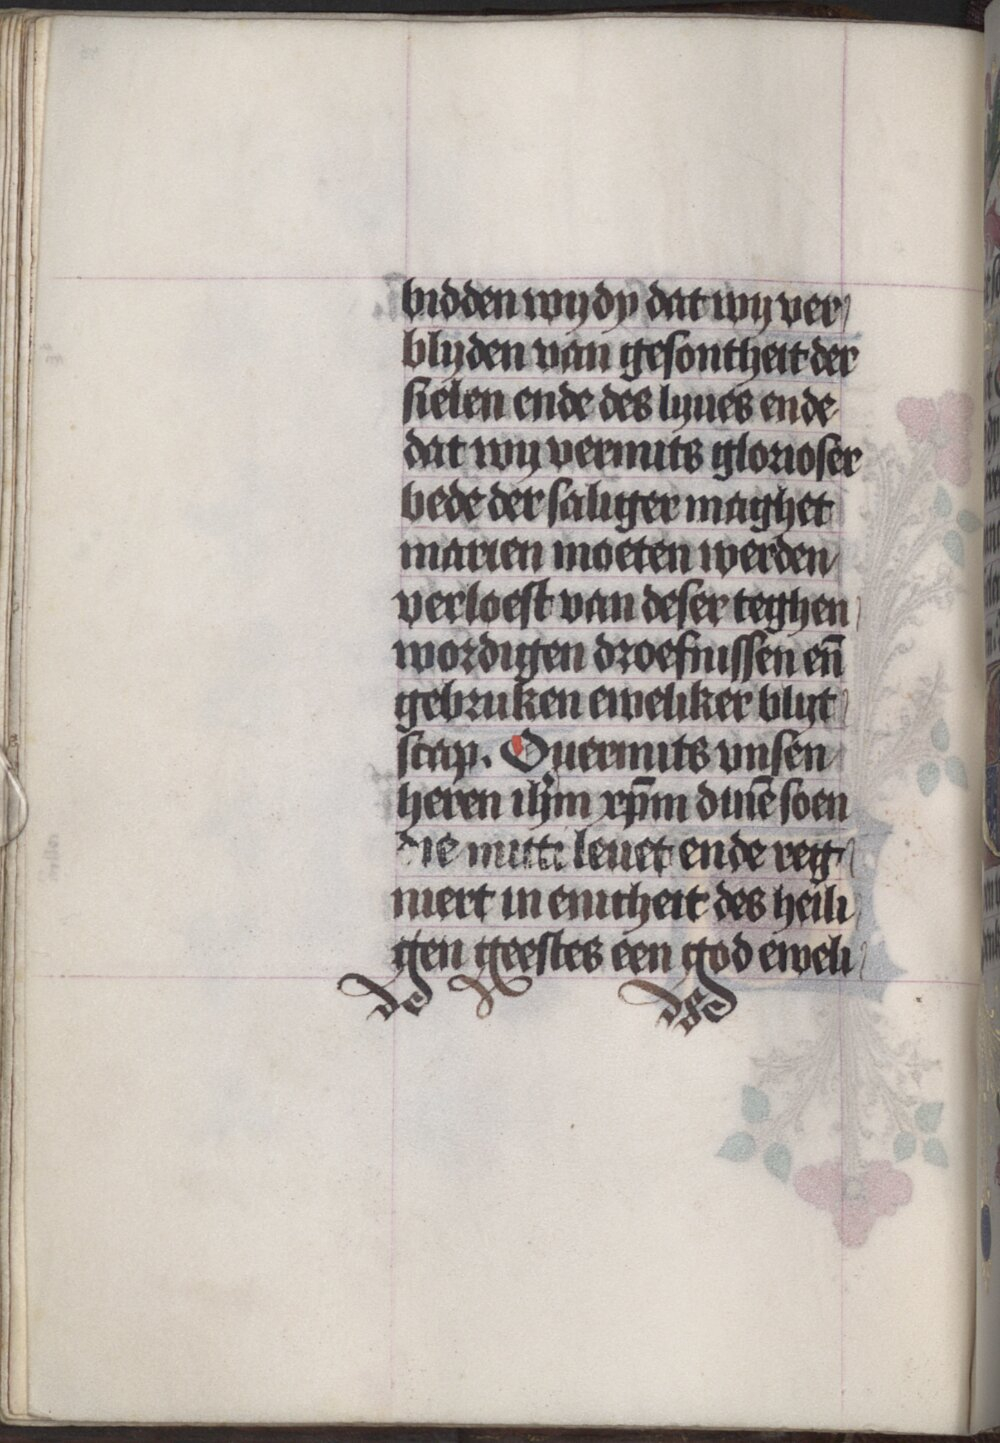 bidden wy dy dat wy ver
blyden van gesontheit der
sielen ende des lyues ende
dat wy vermits glorioser
bede der saliger maghet
marien moeten werden
verloest van deser teghen
wordigen droefnissen en̄
gebruken eweliker blyt
scap. Ouermits vnsen
heren ih̄m xp̄m dinē soen
die mitti leuet ende reg
niert in enicheit des heili
gen geestes een god eweli